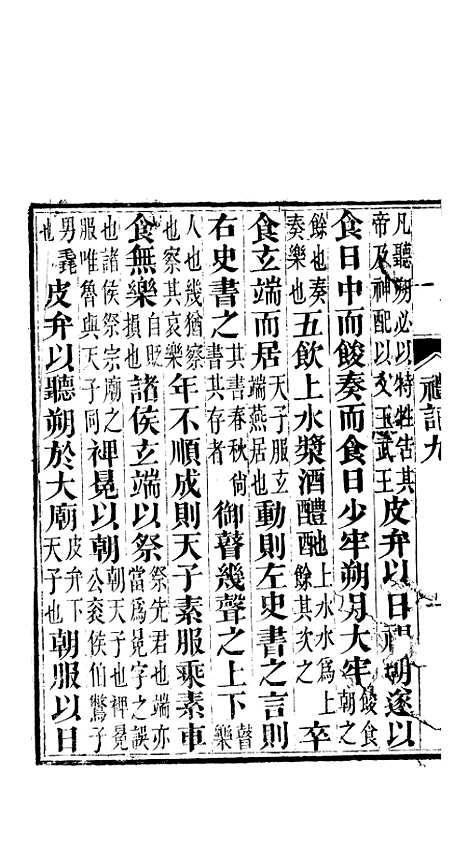 禮記九
凡聽朔必以特牲告其帝及神配以文王武王皮弁以日視朝遂以
食日中而餕奏而食日少牢朔月大牢餕食朝之
餘也奏奏樂也五飲上水漿酒醴酏上水水爲上餘其次之卒
食玄端而居天子服玄端燕居也動則左史書之言則
右史書之其書春秋尙書其存者御瞽幾聲之上下瞽樂
人也幾猶察也察其哀樂年不順成則天子素服乘素車
食無樂自貶損也諸侯玄端以祭祭先君也端亦當爲冕字之誤
也諸侯祭宗廟之服唯魯與天子同裨冕以朝朝天子也裨冕公袞侯伯鷩子
男毳也皮弁以聽朔於大廟皮弁下天子也朝服以日